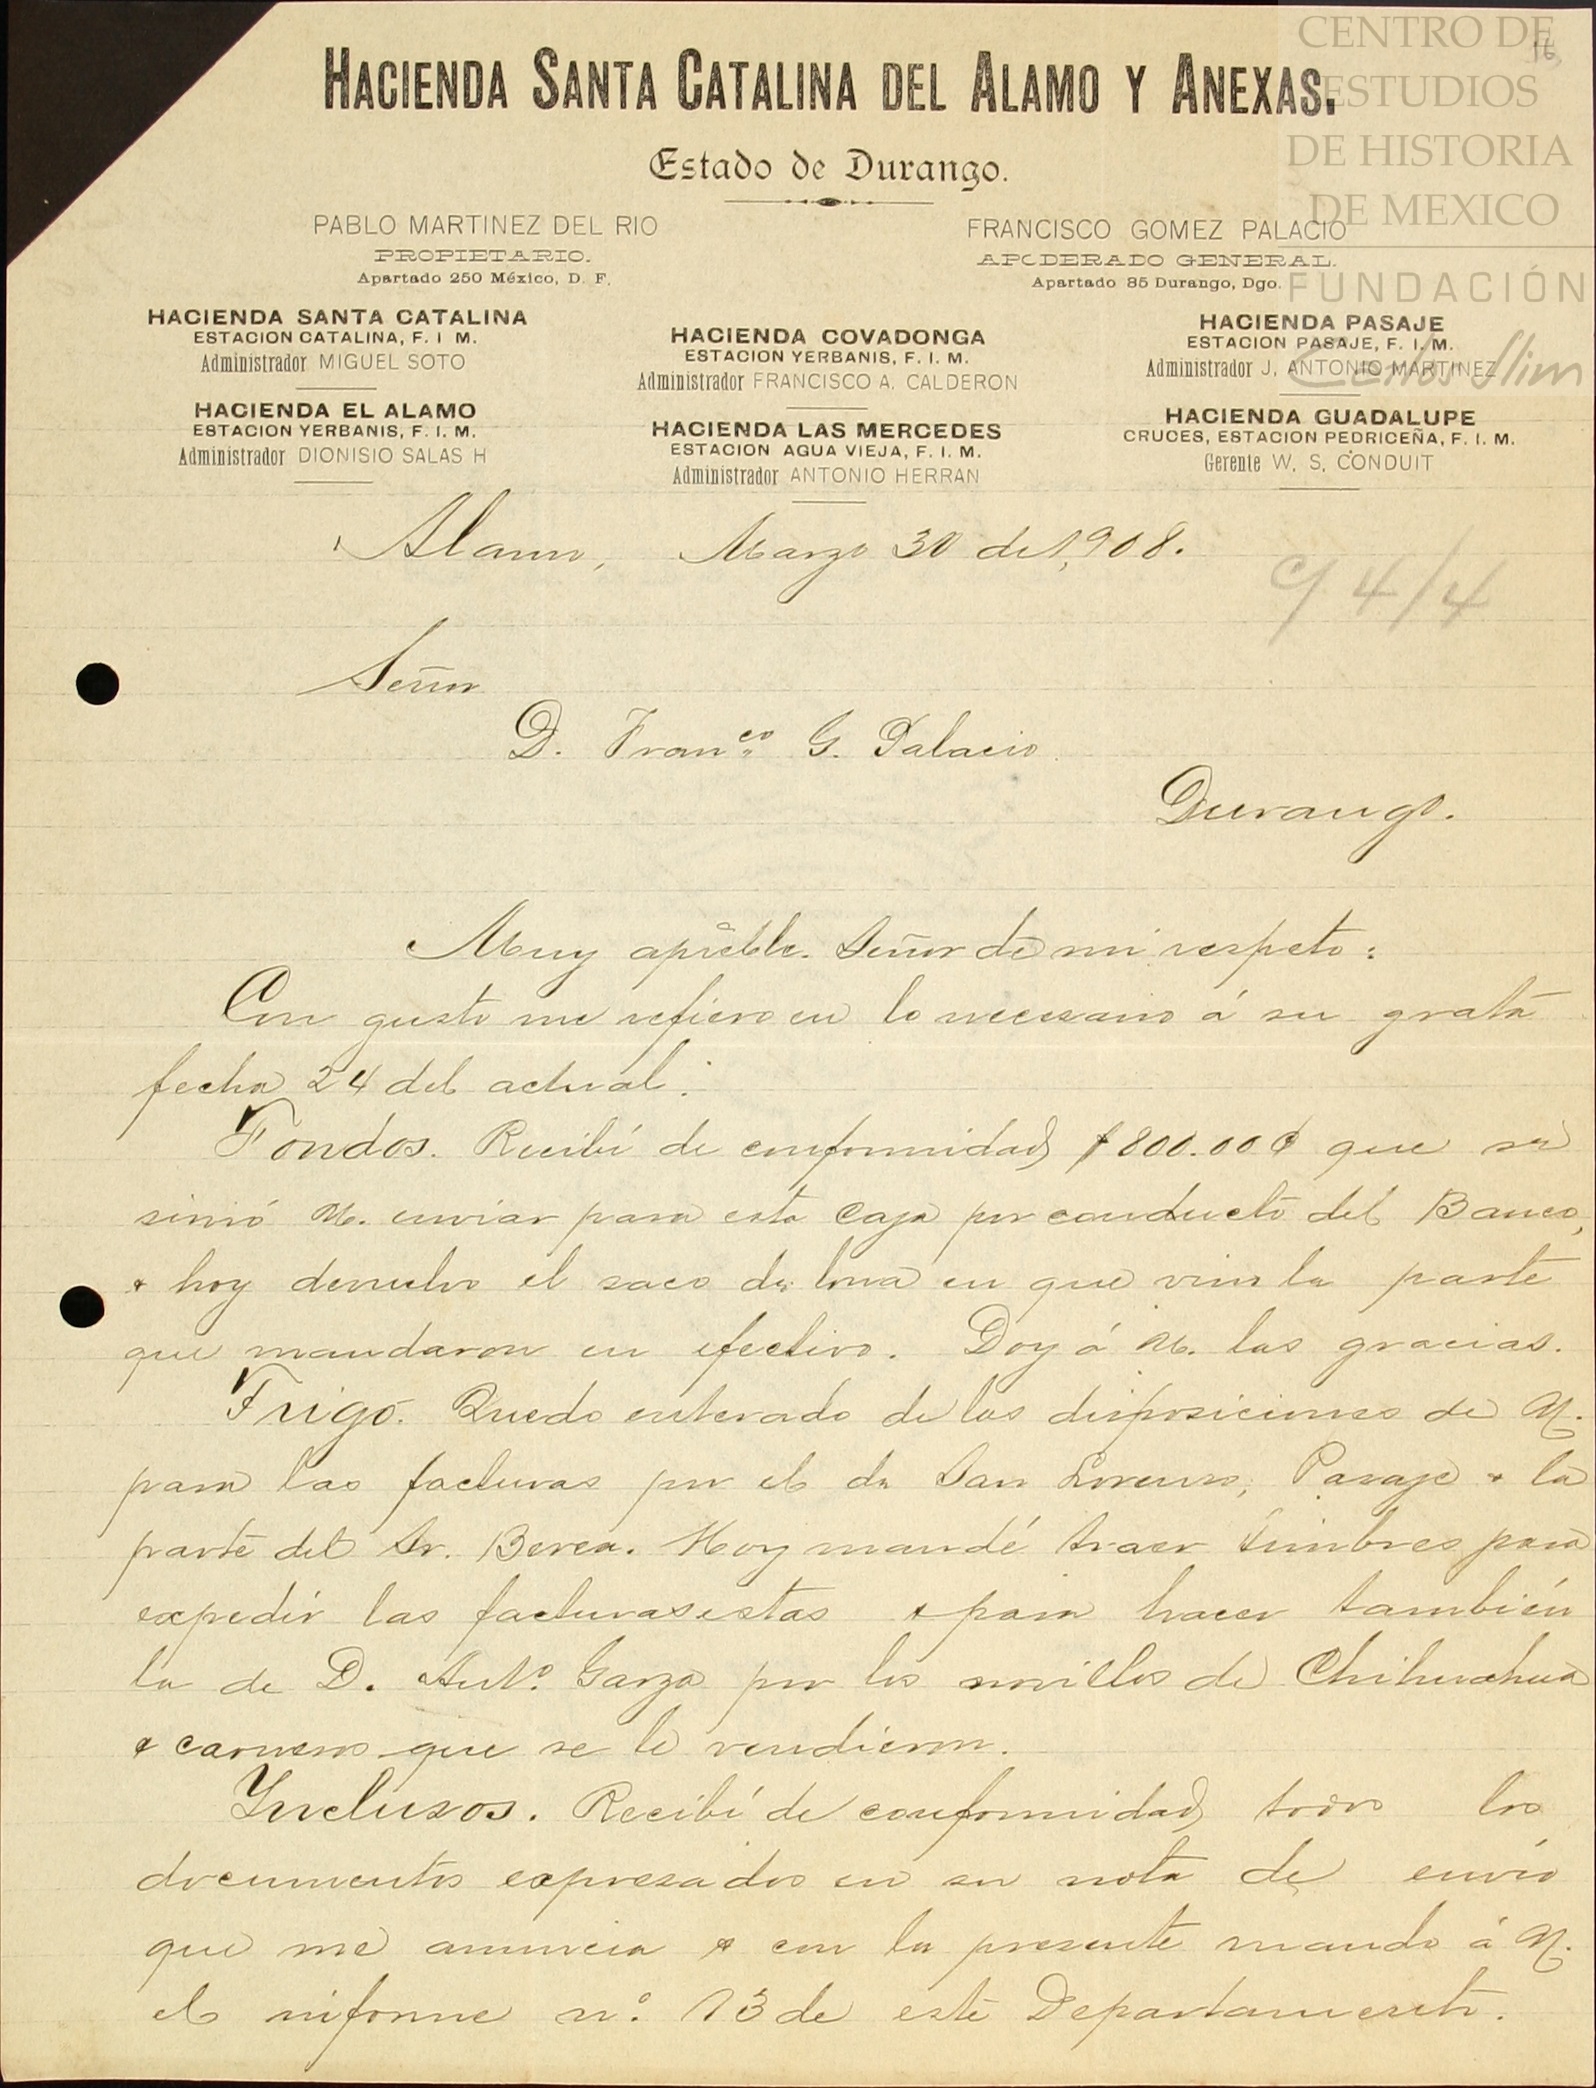 CENTRO DE
ESTUDIOS
DE HISTORIA
DE MEXICO
FUNDACIÓN
Carlos Slim
16
HACIENDA SANTA CATALINA DEL ALAMO Y ANEXAS.
Estado de Durango.
PABLO MARTINEZ DEL RIO
PROPIETARIO.
Apartado 250 México, D. F.
FRANCISCO GOMEZ PALACIO
APODERADO GENERAL.
Apartado 85 Durango, Dgo.
HACIENDA SANTA CATALINA
ESTACION CATALINA, F. I M.
Administrador MIGUEL SOTO
HACIENDA EL ALAMO
ESTACION YERBANIS, F. I. M.
Administrador DIONISIO SALAS H
HACIENDA COVADONGA
ESTACION YERBANIS, F. I. M.
Administrador FRANCISCO A. CALDERON
HACIENDA LAS MERCEDES
ESTACION AGUA VIEJA, F. I. M.
Administrador ANTONIO HERRAN
HACIENDA PASAJE
ESTACION PASAJE, F. I. M.
Administrador J. ANTONIO MARTINEZ
HACIENDA GUADALUPE
CRUCES, ESTACION PEDRICEÑA, F. I. M.
Gerente W. S. CONDUIT
Alamo, Marzo 30 de 1,908.
c/ 4/4
Señor
D. Franco. G. Palacio
Durango.
Muy apreble. Señor de mi respeto:
Con gusto me refiero en lo necesario á su grata
fecha 24 del actual:
Fondos. Recibí de conformidad $800.00¢ que se
sirvió U. enviar para esta Caja por conducto del Banco,
& hoy devuelvo el saco de lona en que vino la parte
que mandaron en efectivo. Doy á U. las gracias.
Trigo. Quedo enterado de las disposiciones de U.
para las facturas por el de San Lorenzo, Pasaje & la
parte del Sr. Berea. Hoy mandé traer timbres para
expedir las facturas estas & para hacer también
la de D. Anto. Garza por los novillos de Chihuahua
& carneros que se le vendieron.
Inclusos. Recibí de conformidad todos los
documentos expresados en su nota de envío
que me anuncia & con la presente mando á U.
el informe no. 13 de este Departamento.